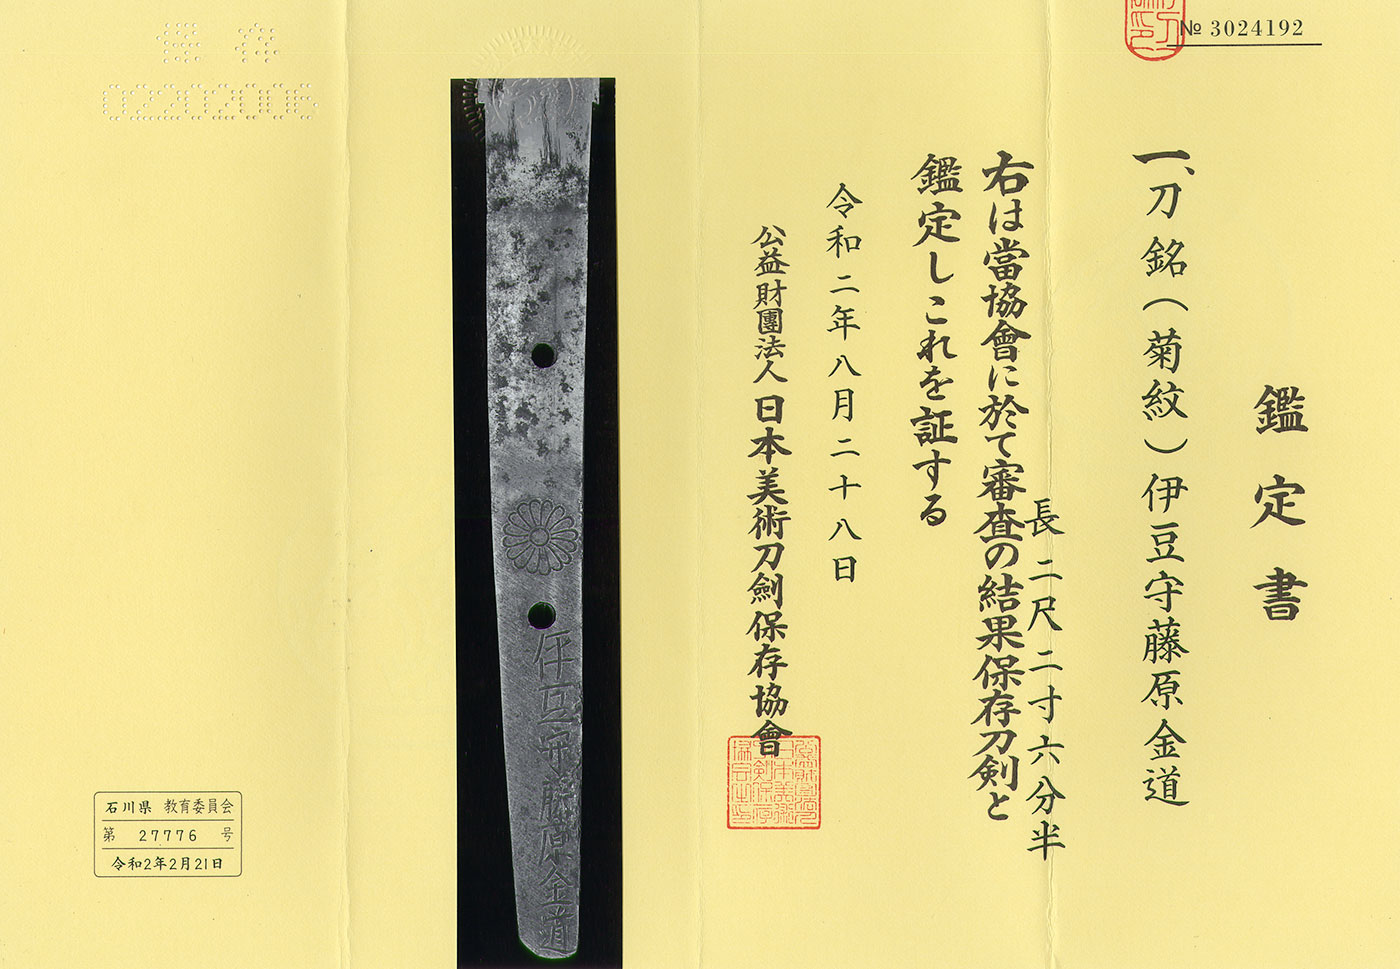 № 3024192
鑑定書
一、刀 銘(菊紋)伊豆守藤原金道
長 二尺二寸六分半
右は當協會に於て審査の結果保存刀剣と
鑑定しこれを証する
令和二年八月二十八日
公益財團法人 日本美術刀劍保存協會
伊豆守藤原金道
保存
02202006
石川県 教育委員会
第 27776 号
令和2年2月21日